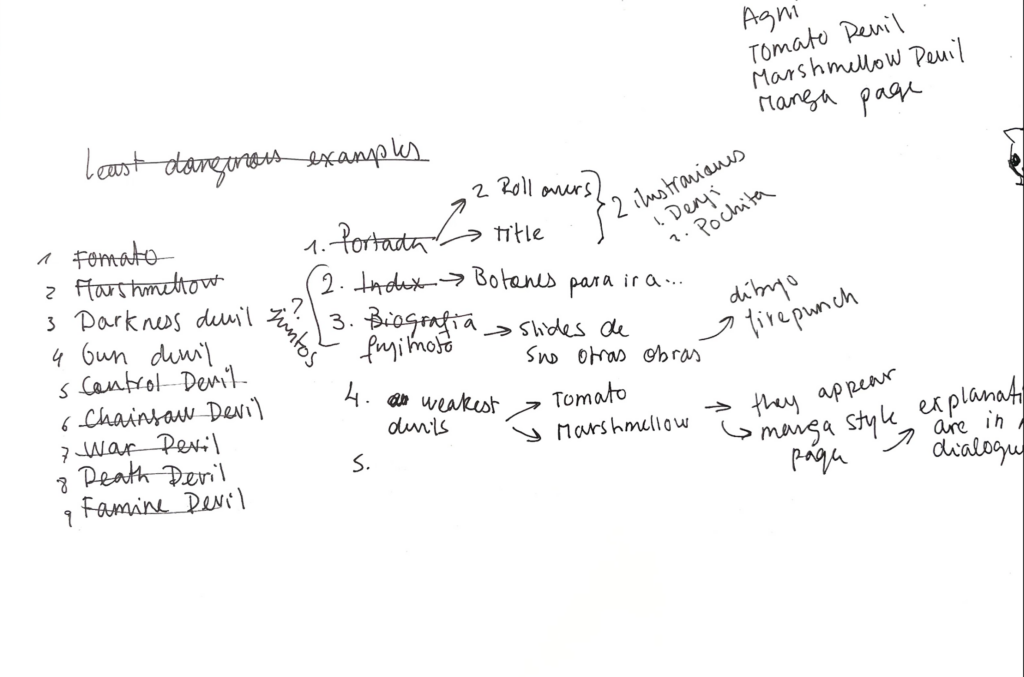 Agni
Tomato Devil
Marshmellow Devil
Manga page
least dangerous examples
1 Tomato
2 Marshmellow
3 Darkness devil
4 Gun devil
5 Control Devil
6 Chainsaw Devil
7 War Devil
8 Death Devil
9 Famine Devil
1. Portada → 2 Roll overs
→ title
2 ilustraciones
1. Denji
2. Pochita
juntos?
2. Index → Botones para ir a...
3. Biografia
fujimoto → slides de
sus otras obras
dibujo
firepunch
4. weakest
devils
→ Tomato
→ Marshmellow
→ they appear
manga style
page
explanati
are in
dialogu
5.